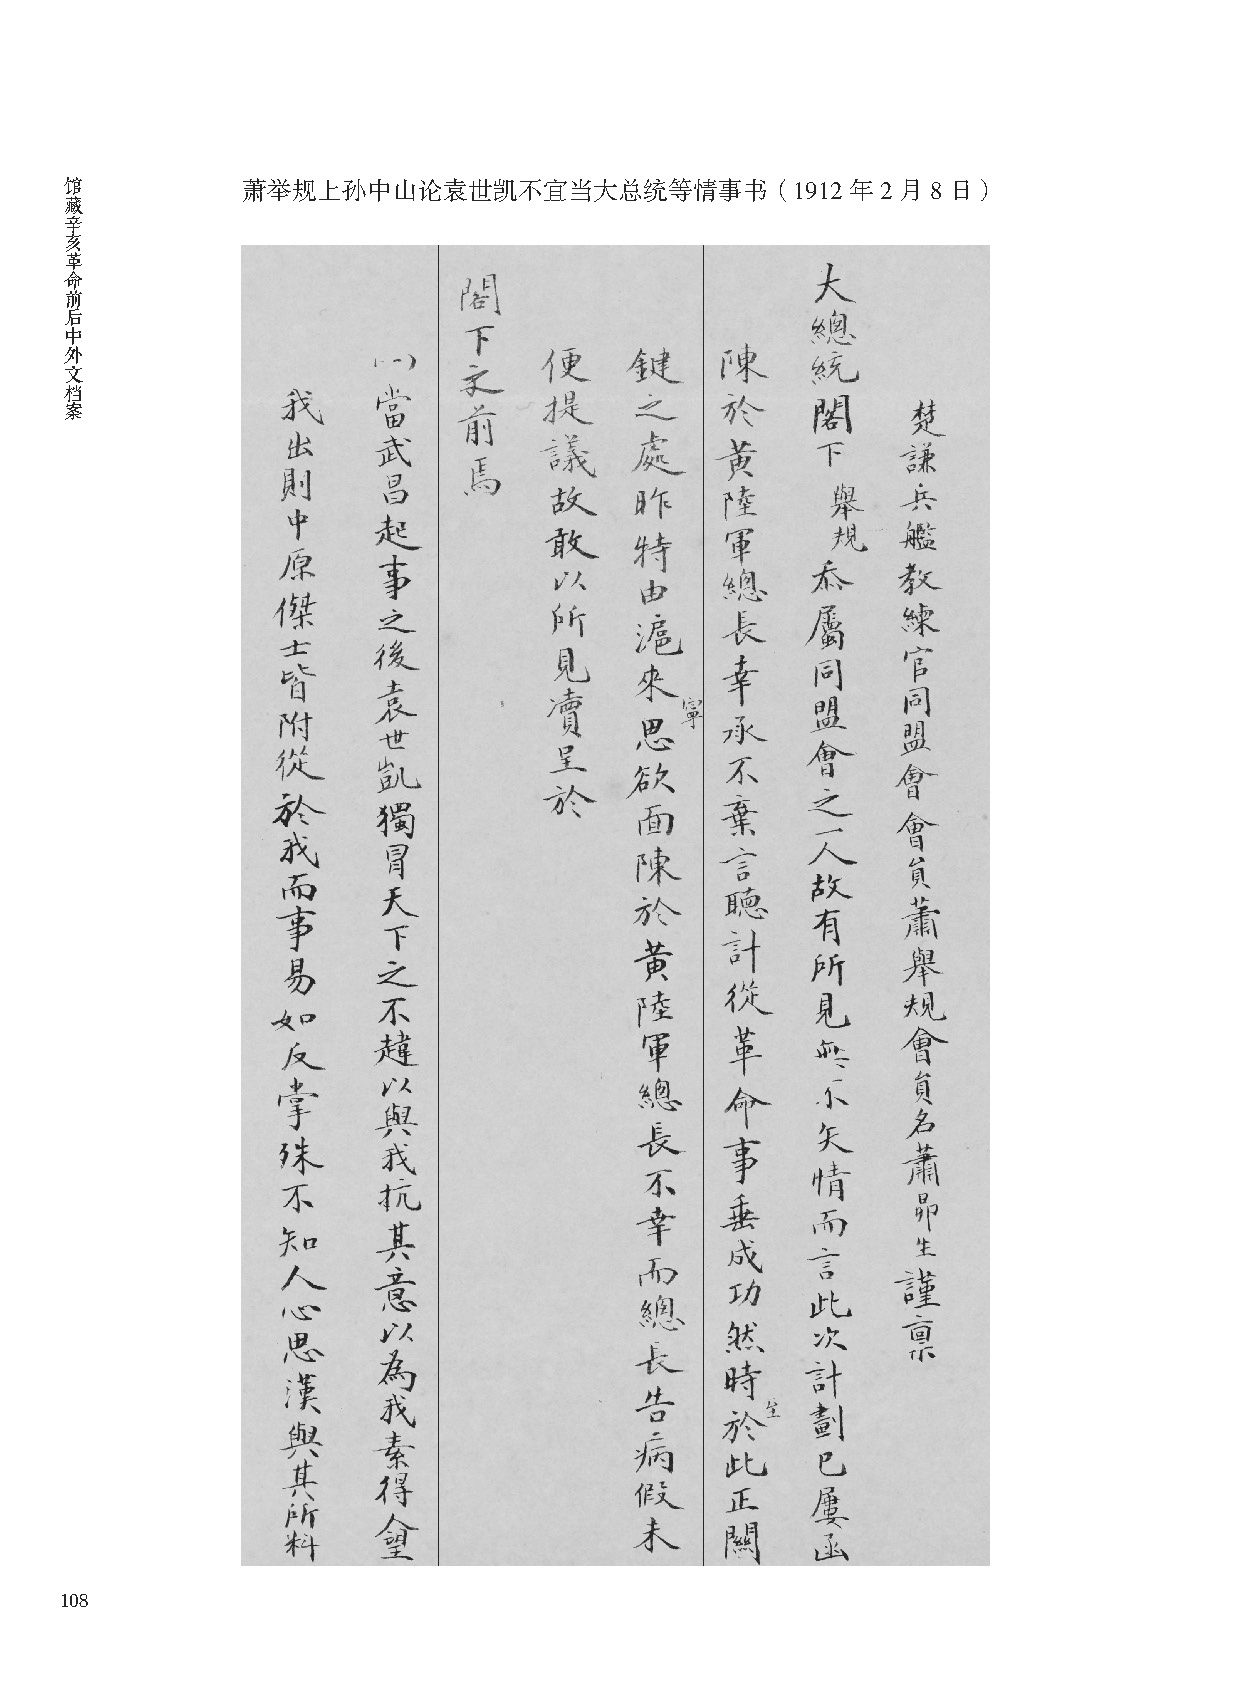 馆藏辛亥革命前后中外文档案
萧举规上孙中山论袁世凯不宜当大总统等情事书（1912 年 2 月 8 日）
楚謙兵艦教練官同盟會會員蕭舉規會員名蕭昴生謹稟
大總統閣下舉規忝屬同盟會之一人故有所見無不矢情而言此次計劃已屢函
陳於黃陸軍總長幸承不棄言聽計從革命事垂成功然時於此正關
鍵之處昨特由滬來寧思欲面陳於黃陸軍總長不幸而總長告病假未
便提議故敢以所見瀆呈於
閣下之前焉
(一)當武昌起事之後袁世凱獨冒天下之不韙以與我抗其意以為我素得人望
我出則中原傑士皆附從於我而事易如反掌殊不知人心思漢與其所料
108